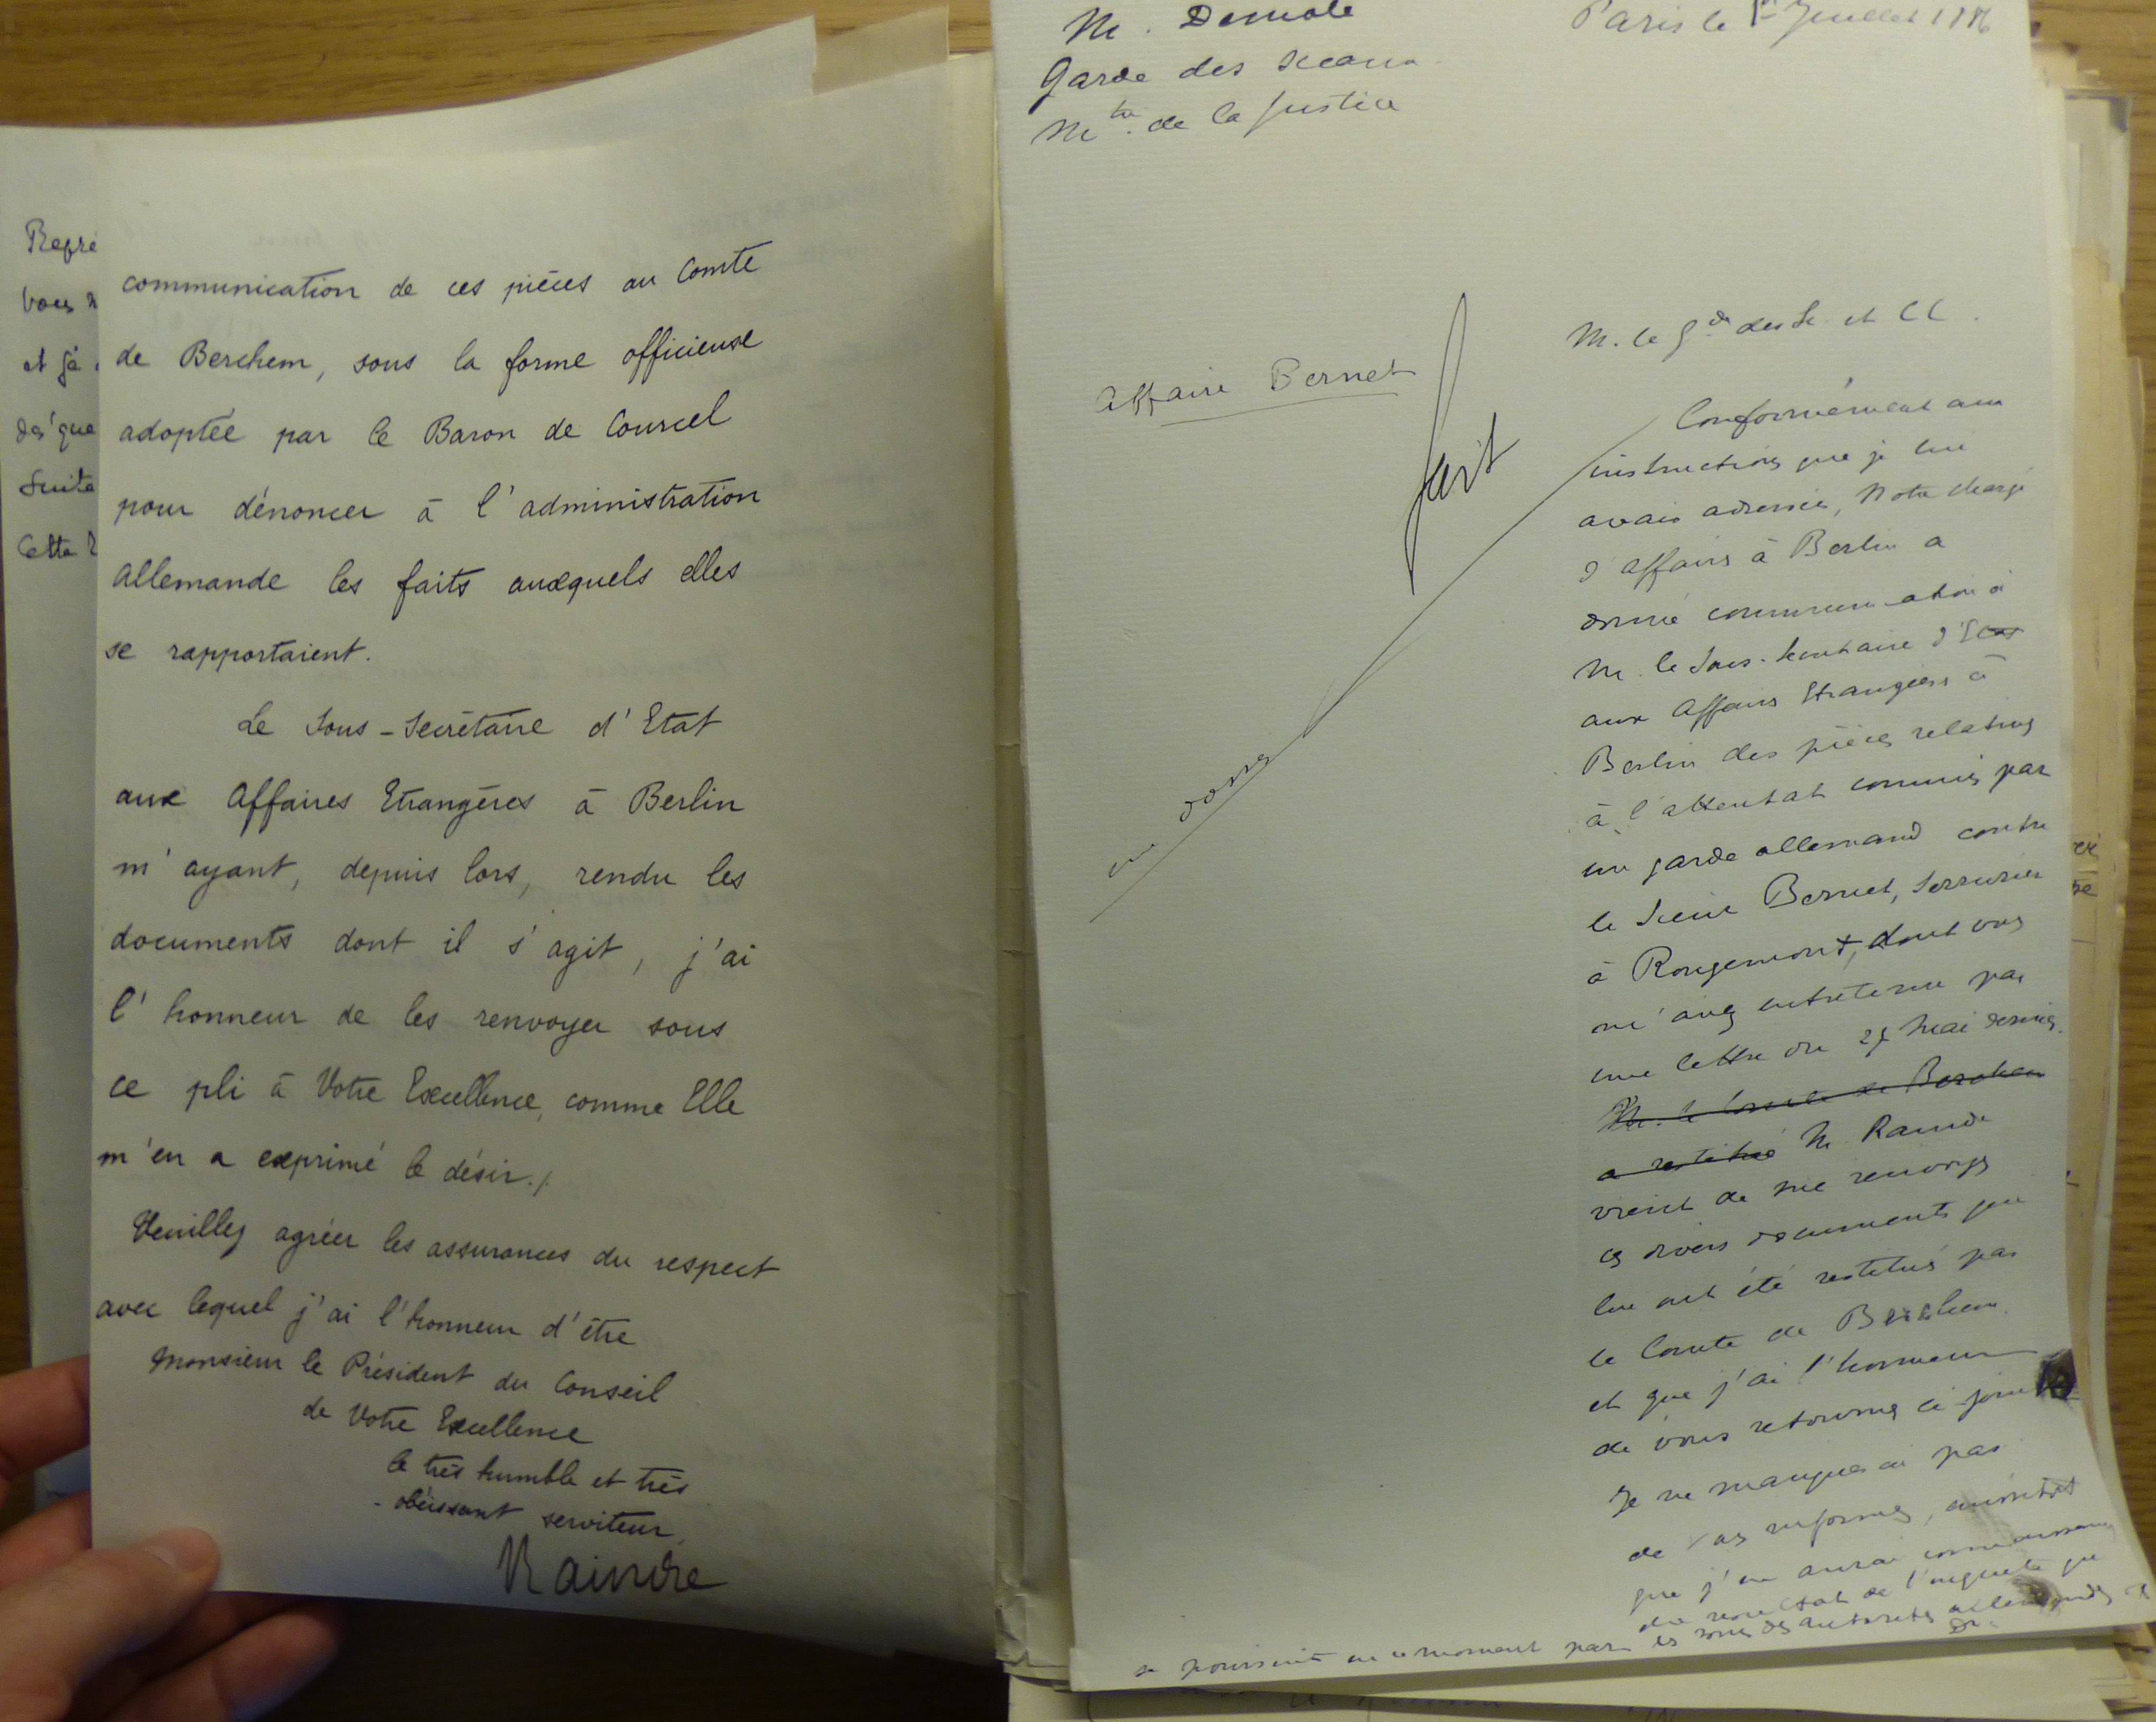 Repré
vous
et j'é
dès que
suite
Cette
communication de ces pièces au Comte
de Berchem, sous la forme officieuse
adoptée par le Baron de Courcel
pour dénoncer à l'administration
allemande les faits auxquels elles
se rapportaient.
Le Sous-Secrétaire d'Etat
aux Affaires Etrangères à Berlin
m'ayant, depuis lors, rendu les
documents dont il s'agit, j'ai
l'honneur de les renvoyer sous
ce pli à Votre Excellence, comme Elle
m'en a exprimé le désir./.
Veuillez agréer les assurances du respect
avec lequel j'ai l'honneur d'être
Monsieur le Président du Conseil
de Votre Excellence
le très humble et très
obéissant serviteur,
Raindre
M. Demole
Garde des Sceaux
Mtre de la Justice
Paris le 1er Juillet 1886
Affaire Bernet
fait
M. le Gde des Sc. et CC.
Conformément aux
instructions que je lui
avais adressées, Notre chargé
d'affaires à Berlin a
donné communication à
M. le Sous-Secrétaire d'Etat
aux Affaires Etrangères à
Berlin des pièces relatives
à l'attentat commis par
un garde allemand contre
le Sieur Bernet, serrurier
à Rougemont, dont vous
m'avez entretenu par
une lettre du 27 Mai dernier.
M. le Comte de Berchem
a restitué M. Raindre
vient de me renvoyer
ces divers documents qui
lui ont été restitués par
le Comte de Berchem
et que j'ai l'honneur
de vous retourner ci-joint
Je ne manquerai pas
de vous informer, aussitôt
que j'en aurai connaissance
du résultat de l'enquête qui
se poursuit en ce moment par les soins des autorités allemandes